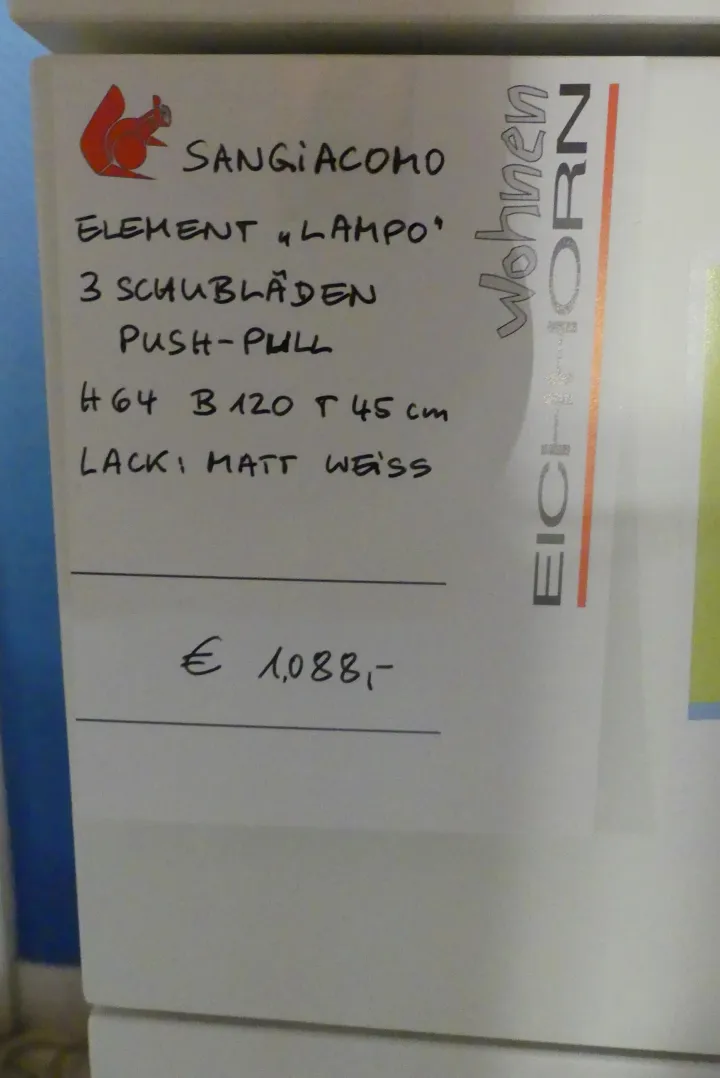 SANGiACOMO
ELEMENT „LAMPO“
3 SCHUBLÄDEN
PUSH-PULL
H 64 B 120 T 45 cm
LACK: MATT WEiSS
€ 1,088,-
Wohnen
EICHHORN